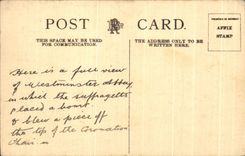 POST CARD.
THIS SPACE MAY BE USED
FOR COMMUNICATION.
THE ADDRESS ONLY TO BE
WRITTEN HERE.
AFFIX
STAMP
Here is a full view
of Westminster Abbey
in which the suffragetts
placed a bomb
& blew a piece off
the top of the Coronation
Chair